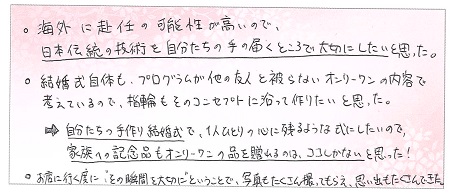 。海外に赴任の可能性が高いので、
日本伝統の技術を自分たちの手の届くところで大切にしたいと思った。
。結婚式自体も、プログラムが他の友人と被らないオンリーワンの内容で
考えているので、指輪もそのコンセプトに沿って作りたいと思った。
⇒ 自分たちの手作り結婚式で、1人ひとりの心に残るような式にしたいので、
家族への記念品もオンリーワンの品を贈れるのは、ココしかないと思った!
。お店に行く度に"その瞬間を大切に"ということで、写真もたくさん撮ってもらえ、思い出もたくさんできた。